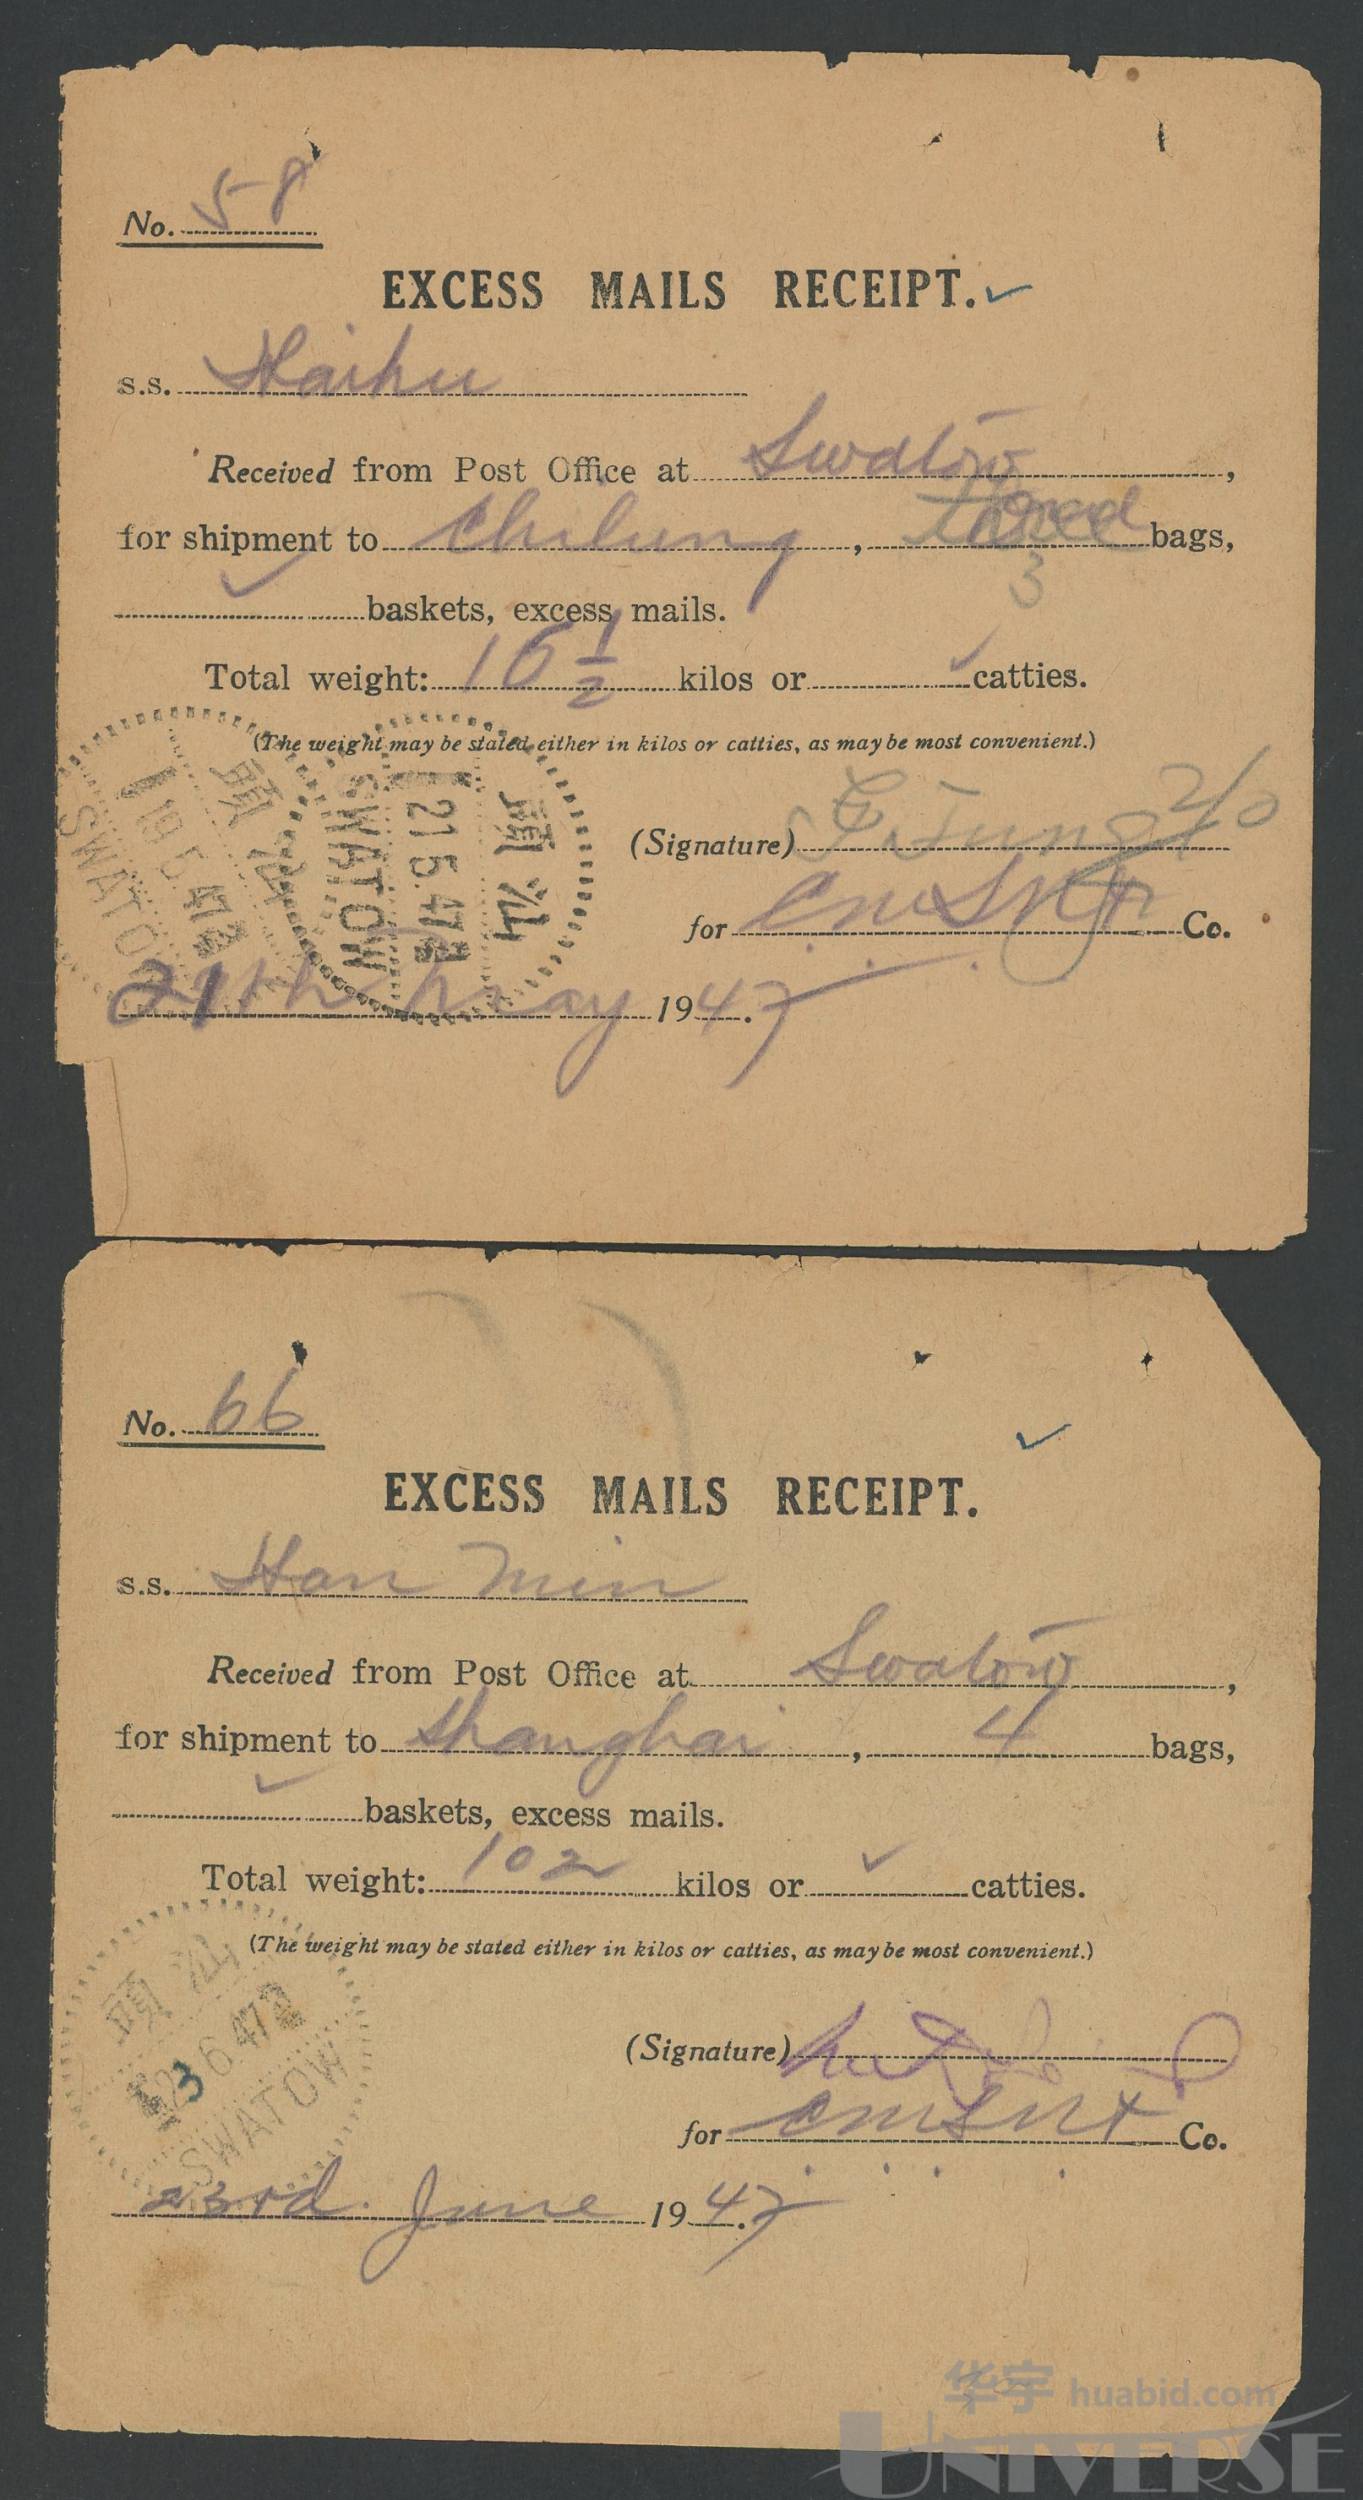 No. 58
EXCESS MAILS RECEIPT.
s.s. Haihu
Received from Post Office at Swatow,
for shipment to Chilung, three bags,
3
baskets, excess mails.
Total weight: 16 1/2 kilos or catties.
(The weight may be stated either in kilos or catties, as may be most convenient.)
(Signature)
for C.M.S.N. Co.
21 May 1947
SWATOW
21 5 47
汕頭
SWATOW
19 5 47
汕頭
No. 66
EXCESS MAILS RECEIPT.
s.s. Han Min
Received from Post Office at Swatow,
for shipment to Shanghai, 4 bags,
baskets, excess mails.
Total weight: 102 kilos or catties.
(The weight may be stated either in kilos or catties, as may be most convenient.)
(Signature)
for C.M.S.N. Co.
汕頭
23 6 47
SWATOW
23rd. June 1947
华宇 huabid.com
UNIVERSE